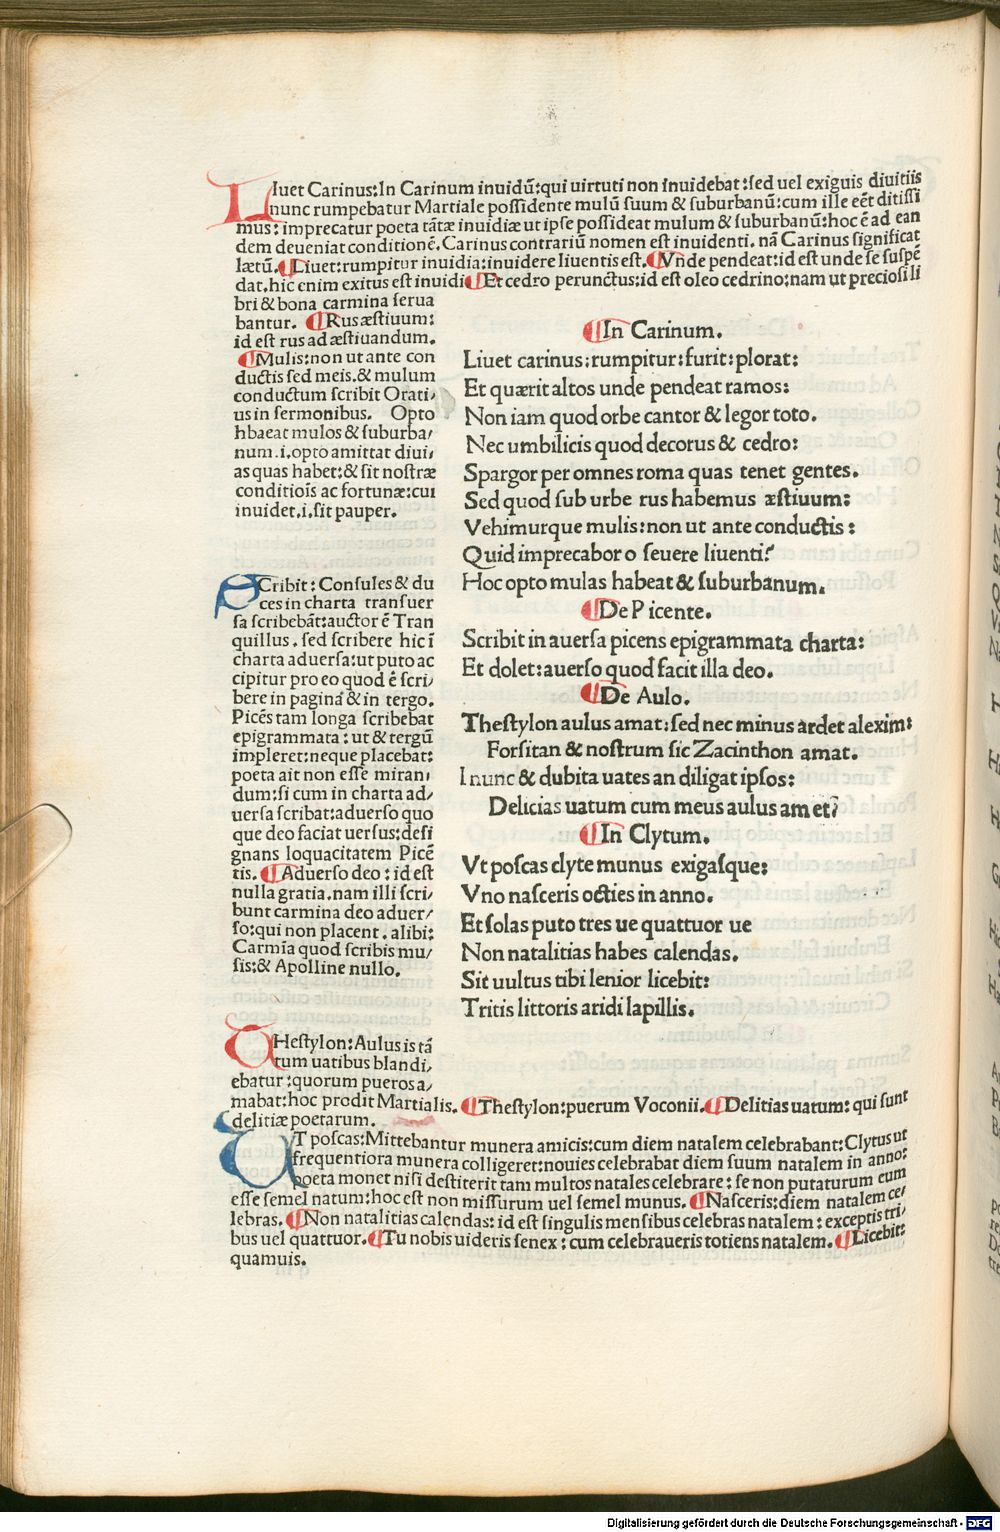 Liuet Carinus:In Carinum inuidū:qui uirtuti non inuidebat:sed uel exiguis diuitiis
nunc rumpebatur Martiale possidente mulū suum & suburbanū:cum ille eēt ditissi
mus: imprecatur poeta tātæ inuidiæ ut ipse possideat mulum & suburbanū:hoc ē ad ean
dem deueniat conditionē. Carinus contrariū nomen est inuidenti. nā Carinus significat
lætū. ¶Liuet:rumpitur inuidia:inuidere liuentis est. ¶Vnde pendeat:id est unde se suspē
dat.hic enim exitus est inuidi ¶Et cedro perunctus:id est oleo cedrino:nam ut preciosi li
bri & bona carmina serua
bantur. ¶Rus æstiuum:
id est rus ad æstiuandum.
¶Mulis:non ut ante con
ductis sed meis.& mulum
conductum scribit Orati/
us in sermonibus. Opto
hbaeat mulos & suburba/
num.i.opto amittat diui/
as quas habet:& sit nostræ
conditiōis ac fortunæ:cui
inuidet.i.sit pauper.
¶In Carinum.
Liuet carinus:rumpitur:furit:plorat:
Et quærit altos unde pendeat ramos:
Non iam quod orbe cantor & legor toto.
Nec umbilicis quod decorus & cedro:
Spargor per omnes roma quas tenet gentes.
Sed quod sub urbe rus habemus æstiuum:
Vehimurque mulis:non ut ante conductis:
Quid imprecabor o seuere liuenti?
Hoc opto mulas habeat & suburbanum.
¶De Picente.
Scribit in auersa picens epigrammata charta:
Et dolet:auerso quod facit illa deo.
¶De Aulo.
Thestylon aulus amat:sed nec minus ardet alexim:
Forsitan & nostrum sic Zacinthon amat.
I nunc & dubita uates an diligat ipsos:
Delicias uatum cum meus aulus amet?
¶In Clytum.
Vt poscas clyte munus exigasque:
Vno nasceris octies in anno.
Et solas puto tres ue quattuor ue
Non natalitias habes calendas.
Sit uultus tibi lenior licebit:
Tritis littoris aridi lapillis.
SCribit: Consules & du
ces in charta transuer
sa scribebāt:auctor ē Tran
quillus. sed scribere hic ī
charta aduersa:ut puto ac
cipitur pro eo quod ē scri/
bere in paginā & in tergo.
Picēs tam longa scribebat
epigrammata: ut & tergū
impleret:neque placebat:
poeta ait non esse miran/
dum:si cum in charta ad/
uersa scribat:aduerso quo
que deo faciat uersus:desi
gnans loquacitatem Picē
tis. ¶Aduerso deo:id est
nulla gratia.nam illi scri/
bunt carmina deo aduer/
so:qui non placent.alibi:
Carmīa quod scribis mu/
sis:& Apolline nullo.
THestylon:Aulus is tā
tum uatibus blandi/
ebatur:quorum pueros a/
mabat:hoc prodit Martialis. ¶Thestylon:puerum Voconii. ¶Delitias uatum: qui sunt
delitiæ poetarum.
UT poscas:Mittebantur munera amicis:cum diem natalem celebrabant:Clytus ut
frequentiora munera colligeret:nouies celebrabat diem suum natalem in anno:
poeta monet nisi destiterit tam multos natales celebrare: se non putaturum eum
esse semel natum:hoc est non missurum uel semel munus. ¶Nasceris:diem natalem ce/
lebras. ¶Non natalitias calendas: id est singulis mensibus celebras natalem: exceptis tri/
bus uel quattuor. ¶Tu nobis uideris senex: cum celebraueris totiens natalem. ¶Licebit:
quamuis.
Digitalisierung gefördert durch die Deutsche Forschungsgemeinschaft - DFG